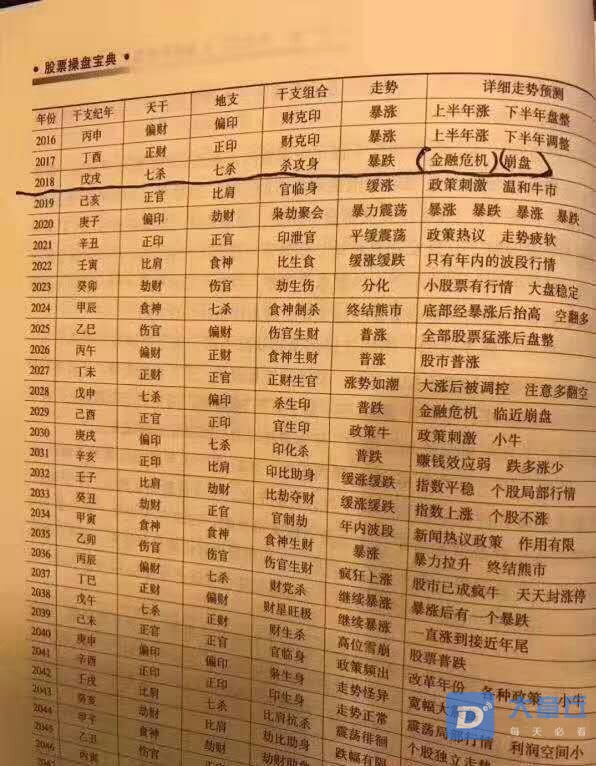 • 股票操盘宝典 •
年份 干支纪年 天干 地支 干支组合 走势 详细走势预测
2016 丙申 偏财 偏印 财克印 暴涨 上半年涨 下半年盘整
2017 丁酉 正财 正印 财克印 暴涨 上半年涨 下半年调整
2018 戊戌 七杀 七杀 杀攻身 暴跌 金融危机 崩盘
2019 己亥 正官 比肩 官临身 缓涨 政策刺激 温和牛市
2020 庚子 偏印 劫财 枭劫聚会 暴力震荡 暴涨 暴跌 暴涨 暴跌
2021 辛丑 正印 正官 印泄官 平缓震荡 政策热议 走势疲软
2022 壬寅 比肩 食神 比生食 缓涨缓跌 只有年内的波段行情
2023 癸卯 劫财 伤官 劫生伤 分化 小股票有行情 大盘稳定
2024 甲辰 食神 七杀 食神制杀 终结熊市 底部经暴涨后抬高 空翻多
2025 乙巳 伤官 偏财 伤官生财 普涨 全部股票猛涨后盘整
2026 丙午 偏财 正财 食神生财 普涨 股市普涨
2027 丁未 正财 正官 正财生官 涨势如潮 大涨后被调控 注意多翻空
2028 戊申 七杀 偏印 杀生印 普跌 金融危机 临近崩盘
2029 己酉 正官 正印 官生印 政策牛 政策刺激 小牛
2030 庚戌 偏印 七杀 印化杀 普跌 赚钱效应弱 跌多涨少
2031 辛亥 正印 比肩 印比助身 缓涨缓跌 指数平稳 个股局部行情
2032 壬子 比肩 劫财 比劫夺财 缓涨缓跌 指数上涨 个股不涨
2033 癸丑 劫财 正官 官制劫 年内波段 新闻热议政策 作用有限
2034 甲寅 食神 食神 食神生财 暴涨 暴力拉升 终结熊市
2035 乙卯 伤官 伤官 伤官生财 疯狂上涨 股市已成疯牛 天天封涨停
2036 丙辰 偏财 七杀 财党杀 继续暴涨 暴涨后有一个暴跌
2037 丁巳 正财 偏财 财星旺极 继续暴涨 一直涨到接近年尾
2038 戊午 七杀 正财 财生杀 高位雪崩 股票普跌
2039 己未 正官 正官 官临身 政策频出 改革年份 各种政策 小牛
2040 庚申 偏印 偏印 枭生身 走势怪异 宽幅大
2041 辛酉 正印 正印 印生身 走势正常 震荡局部行情 利润空间小
2042 壬戌 比肩 七杀 比肩抗杀 震荡徘徊 个股独立走势
2043 癸亥 劫财 比肩 劫比助身 跌幅有限
甲子 食神 劫财
2045 乙丑 伤官
2046 丙寅
大鱼口
每天必看